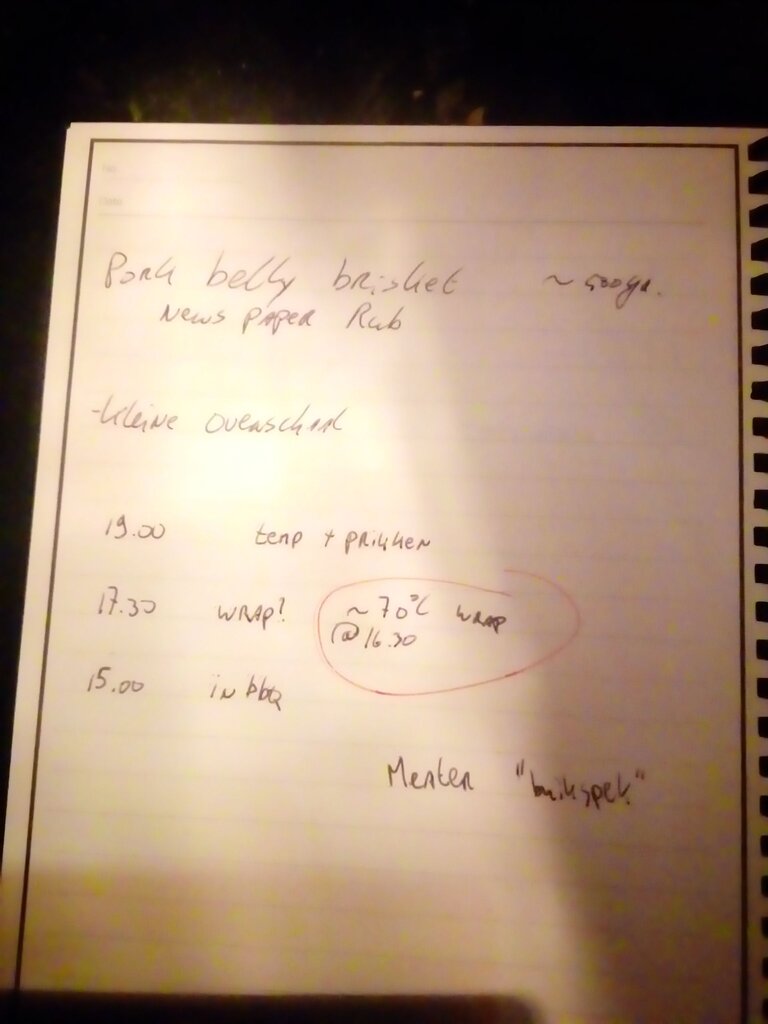 No.
Date
Pork belly brisket ~ 500gr.
News paper Rub
-kleine ovenschaal
19.00 temp + prikken
17.30 wrap? ~ 70°C wrap
@ 16.30
15.00 in bbq
Menten "buikspek"